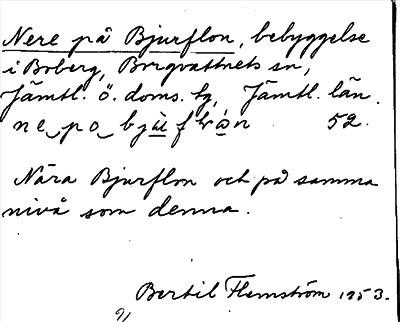 Nere på Bjurflon, bebyggelse
i Boberg, Borgvattnets sn,
Jämtl. ö. doms. tg, Jämtl. län.
ne po bj 52.
Nära Bjurflon och på samma
nivå som denna.
Bertil Flemström 1953.